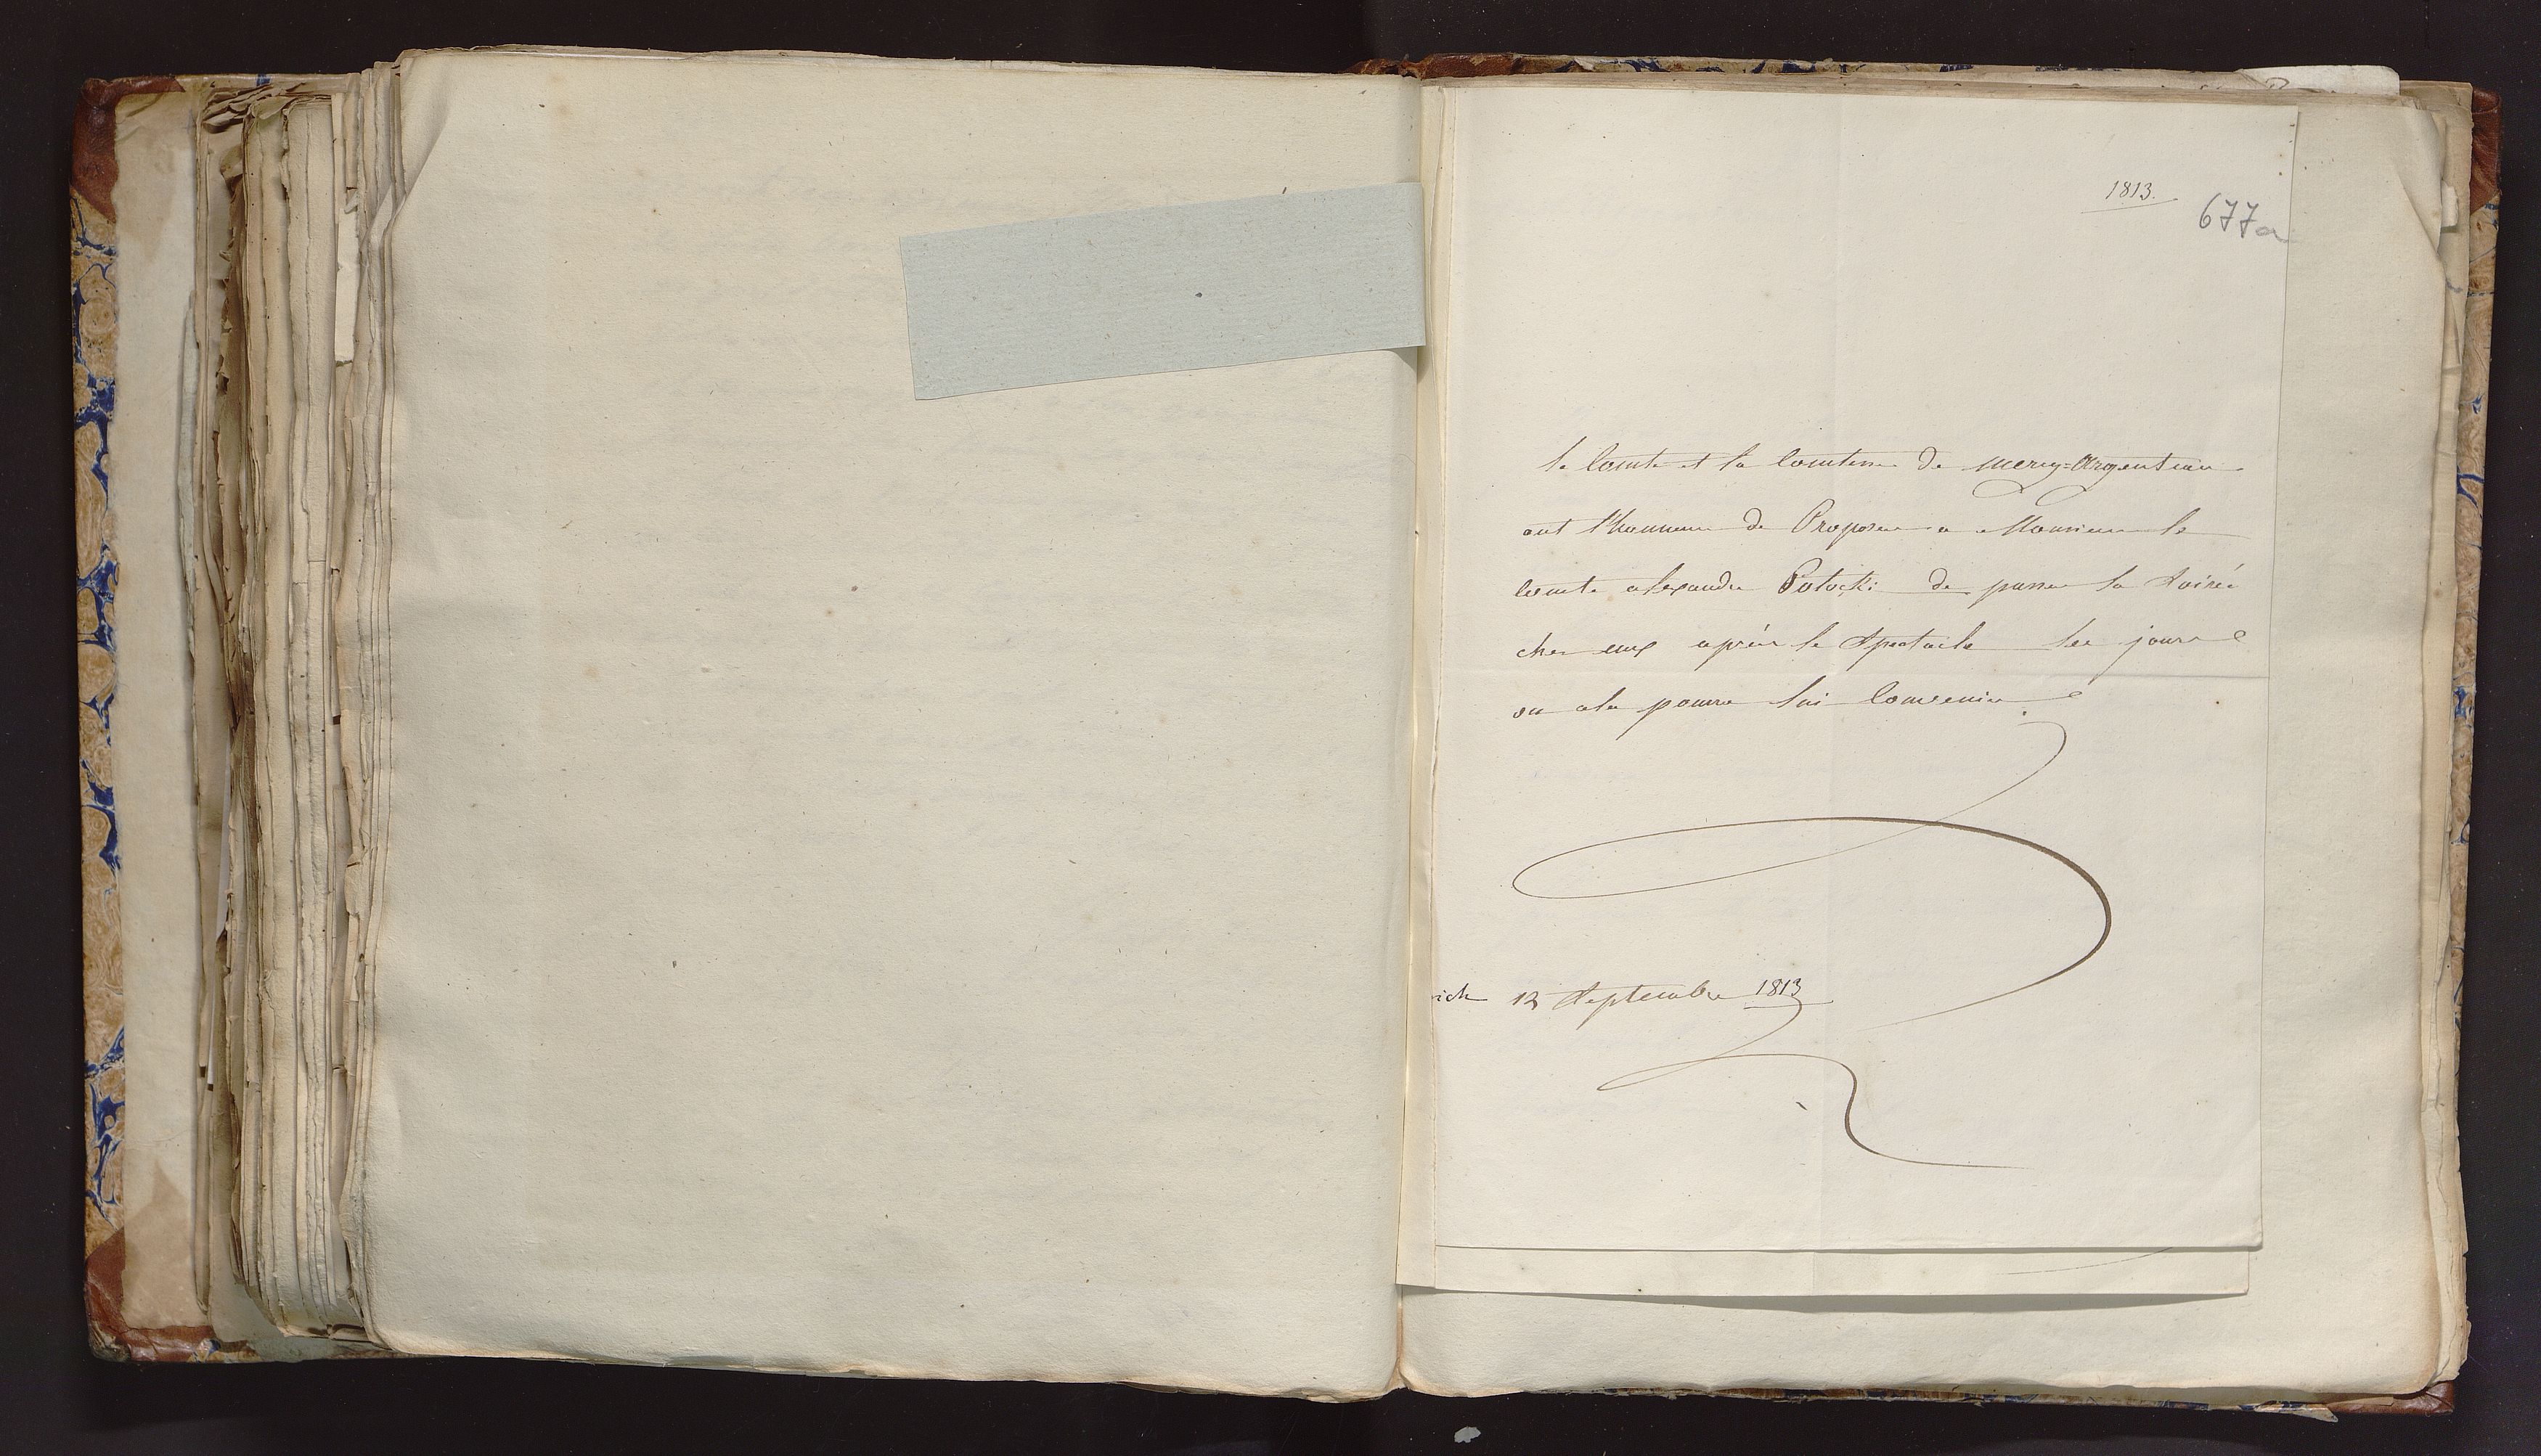 1813.
677a
le Comte et la Comtesse de mercy=Argenteau
ont l'honneur de Proposer a Monsieur le
Comte alexandre Potocki de passer la Soirée
chez eux après le Spectacle les jours
ou cela pourra lui Convenir
ich 12 Septembre 1813